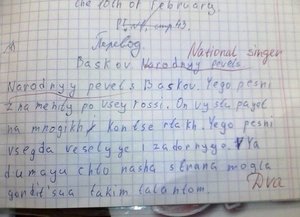 the 10th of February.
Перевод.
National singer
Baskov Narodnyy pevets.
Narodnyy pevets Baskov. Yego pesni
znamenity po vsey rossi. On vystupayet
na mnogikh kontsertakh. Yego pesni
vsegda veselyye i zadornyye. Ya
dumayu chto nasha strana mogla
gordit'sya takim talantom.
Dva